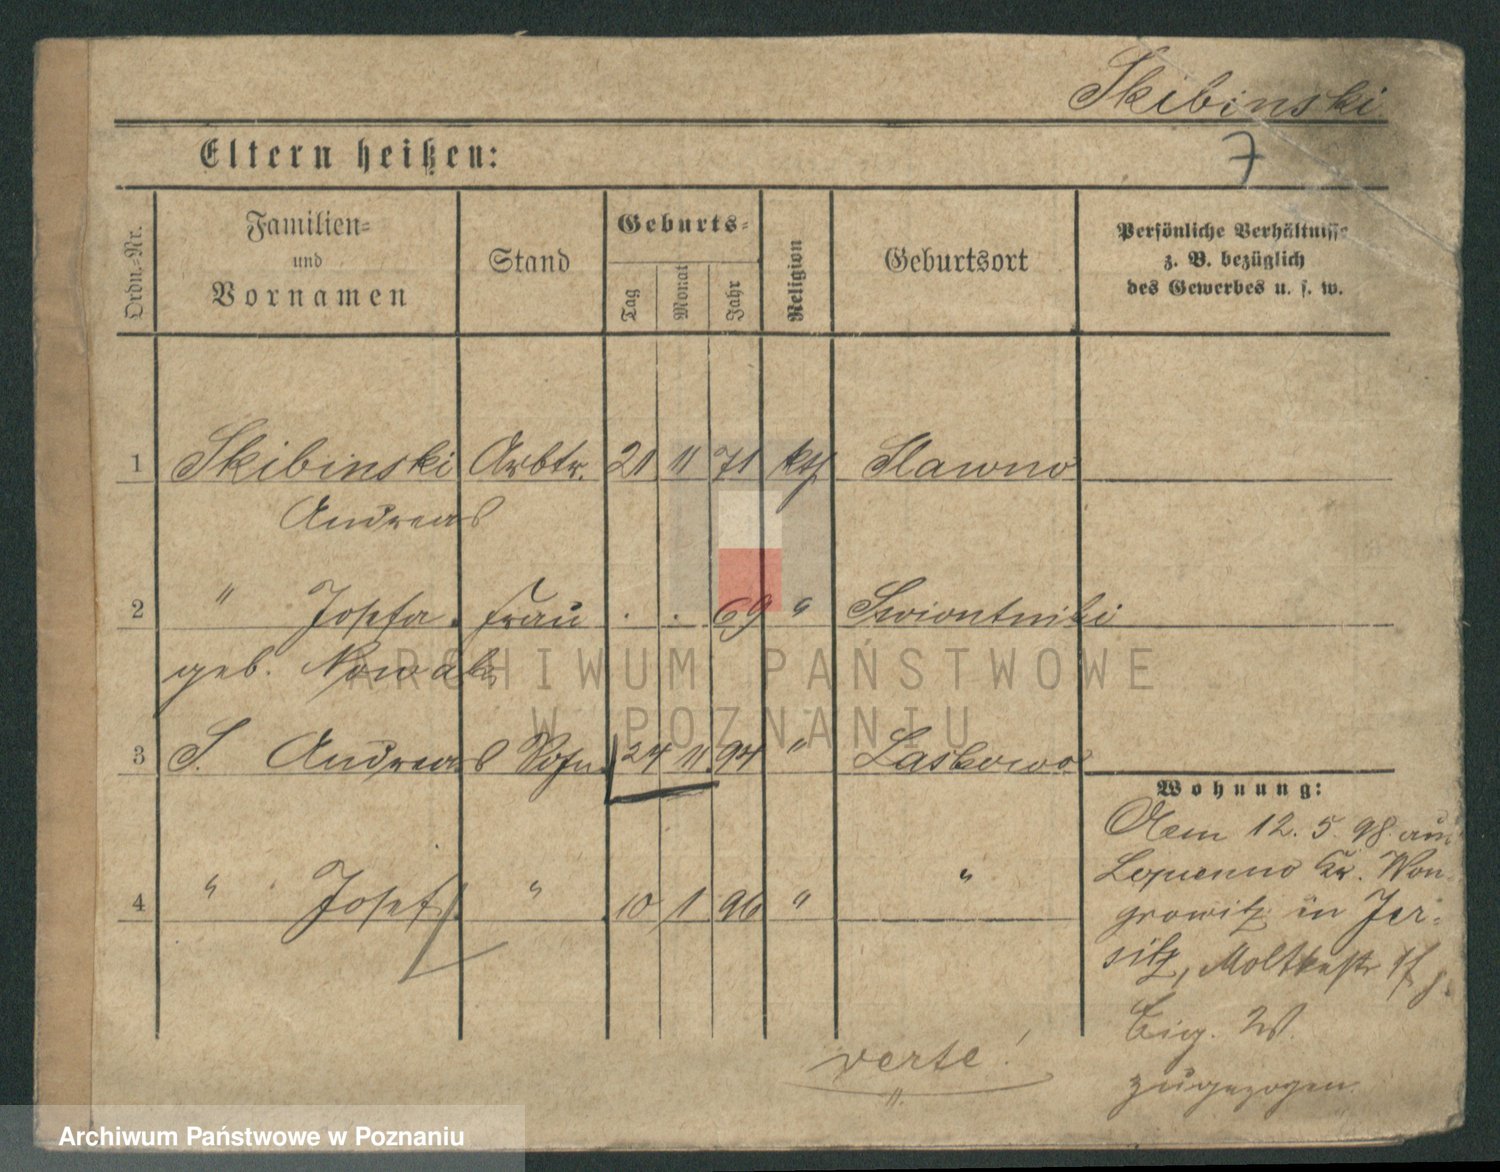 Skibinski
7
Eltern heißen:
Ordn.-Nr.
Familien-
und
Vornamen
Stand
Geburts-
Tag
Monat
Jahr
Religion
Geburtsort
Persönliche Verhältnisse
z. B. bezüglich
des Gewerbes u. s. w.
1 Skibinski Arbtr. 21 11 71 kth Slawno
Andreas
2 " Josefa Frau . . 69 " Swiontniki
geb. Nowak
3 S. Andreas Sohn 24 11 94 " Laskowo
4 " Josef " 10 1 96 " "
Wohnung:
Am 12. 5. 98 aus
Lopienno Kr. Won-
growitz in Jer-
sitz, Moltkestr
Eig. W.
zugezogen
verte!
ARCHIWUM PAŃSTWOWE
W POZNANIU
Archiwum Państwowe w Poznaniu